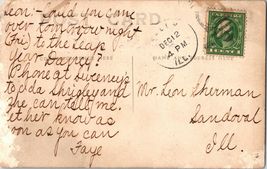 Leon - Could you can
over tomorrow night
(Fri) to the Leap
Year Dance?
Phone at Sweeneys
to Ida Shigley and
she can tell me.
let her know as
soon as you can
Faye
CARD
DEC 12
4 PM
ILL.
Mr. Leon Sherman
Sandoval
Ill.